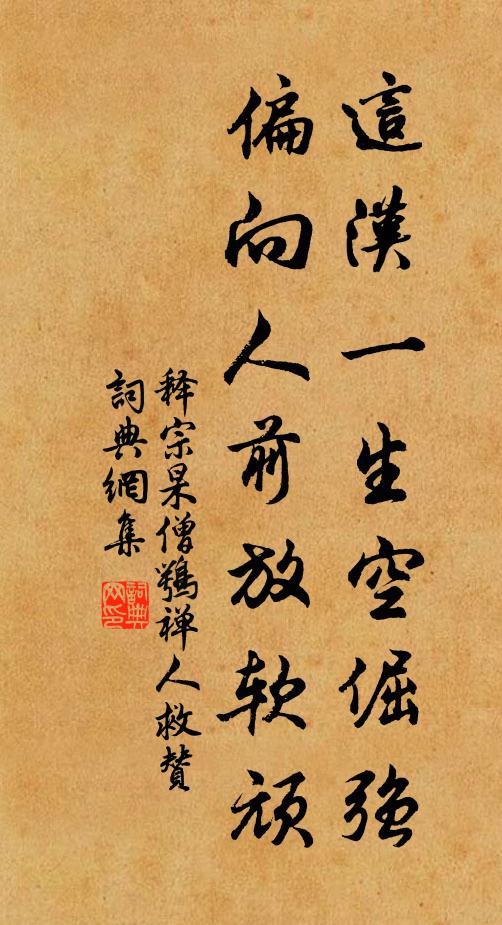 這漢一生空倔強
偏向人前放軟頑
释宗杲僧鶚禅人救贊
詞典網集
詞典网印